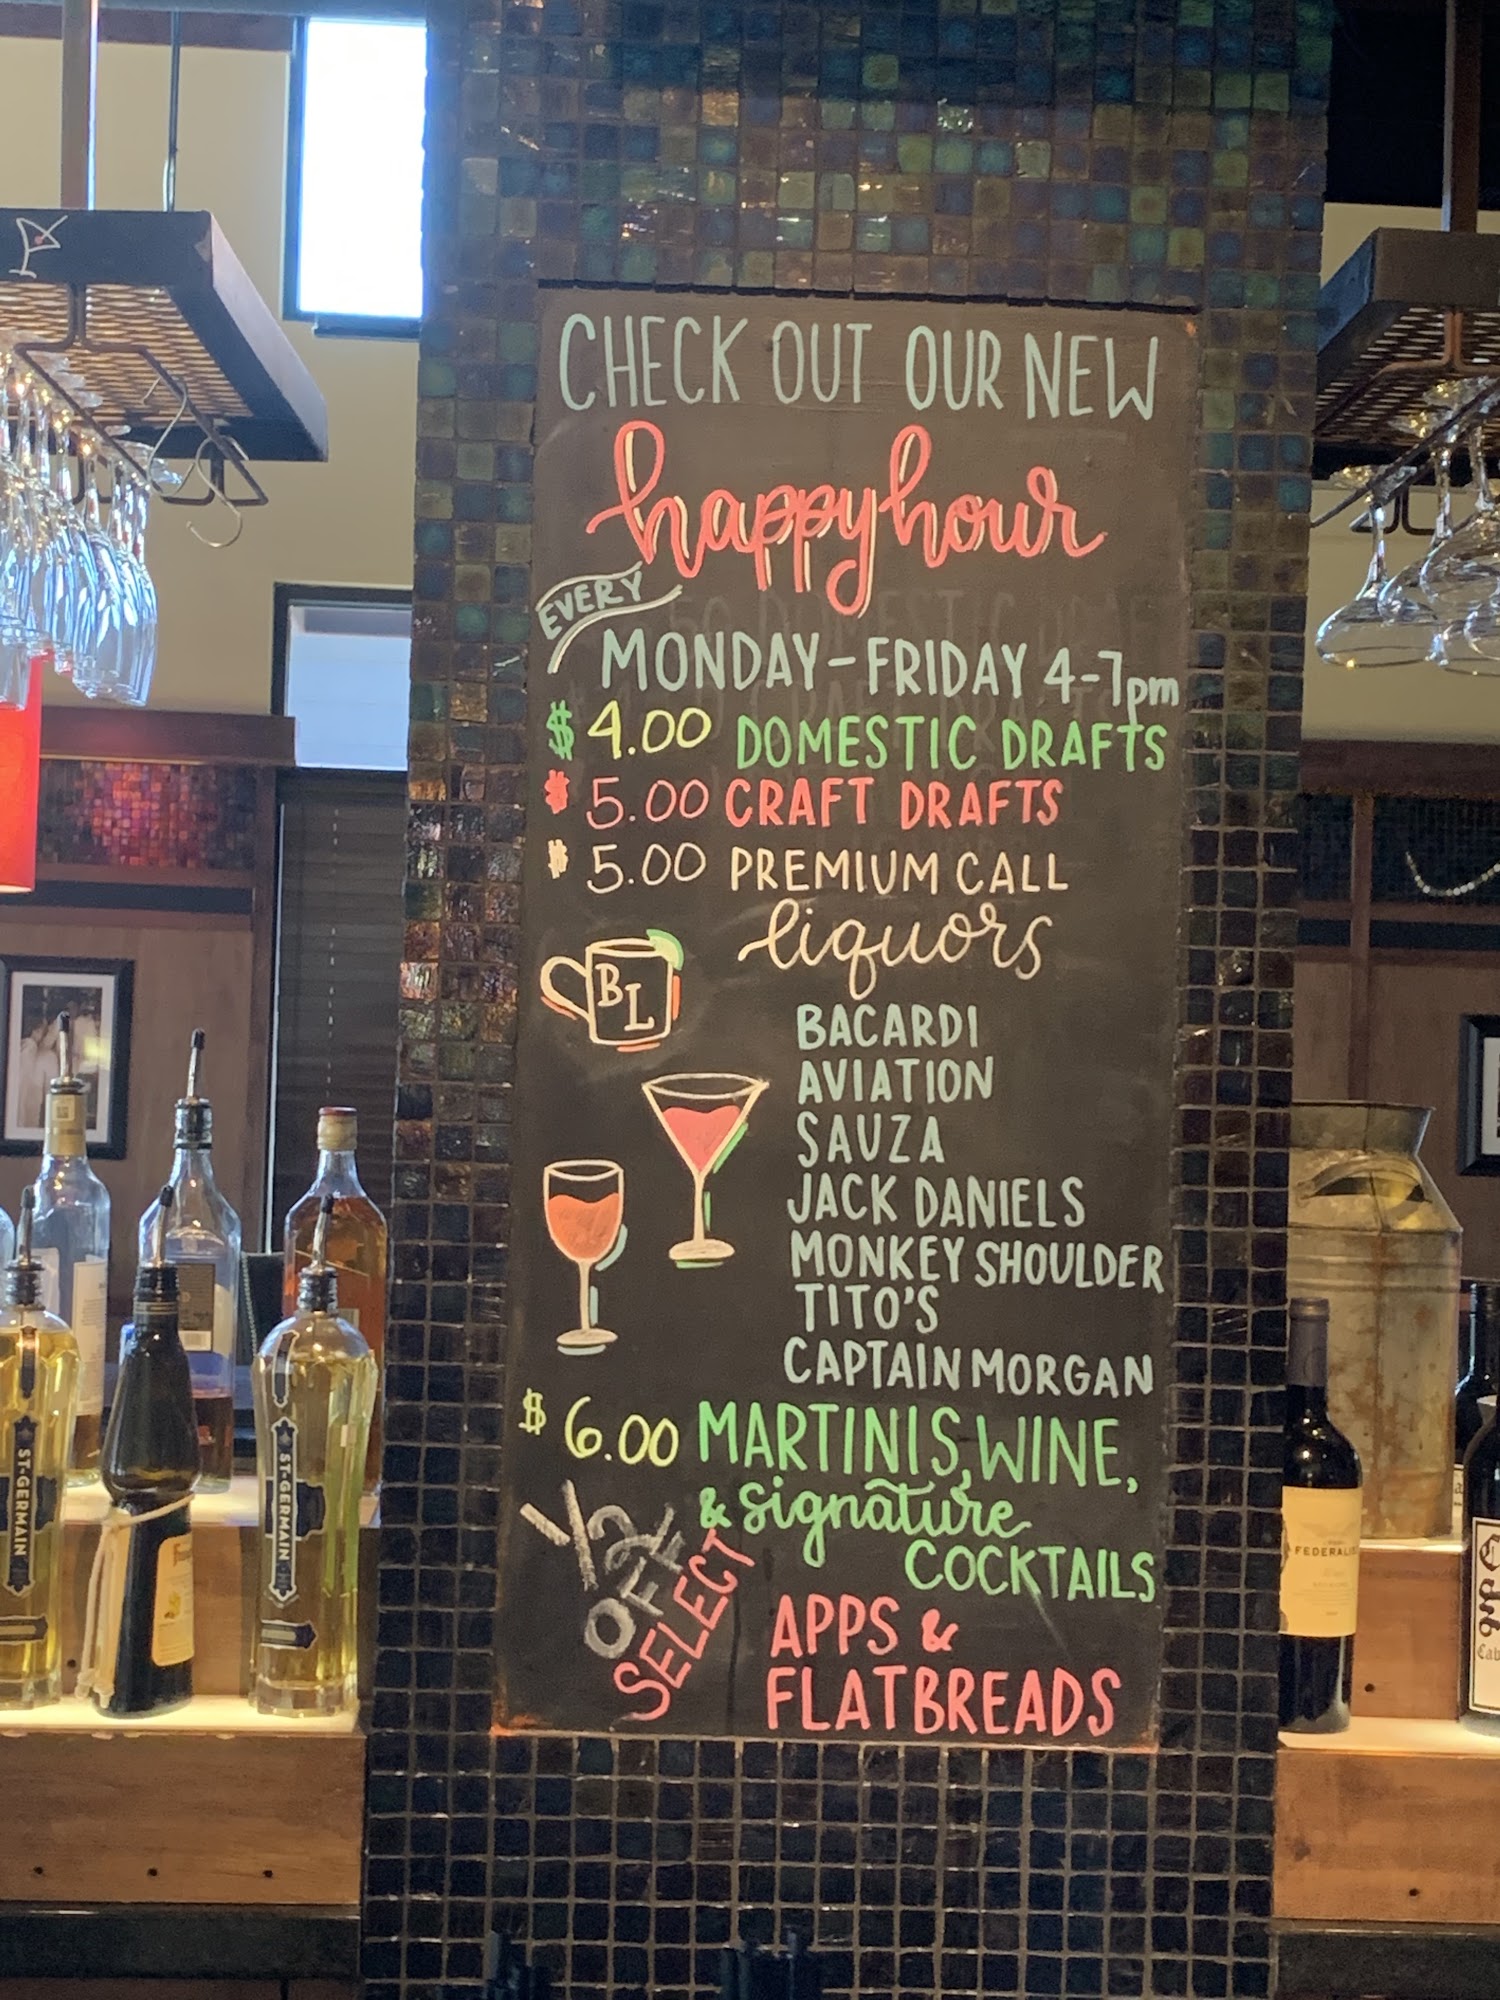 CHECK OUT OUR NEW
happy hour
EVERY
MONDAY-FRIDAY 4-7pm
$ 4.00 DOMESTIC DRAFTS
$ 5.00 CRAFT DRAFTS
$ 5.00 PREMIUM CALL
liquors
BL
BACARDI
AVIATION
SAUZA
JACK DANIELS
MONKEY SHOULDER
TITO'S
CAPTAIN MORGAN
$ 6.00 MARTINIS, WINE,
& signature
COCKTAILS
1/2 OFF
SELECT
APPS &
FLATBREADS
ST-GERMAIN
ST-GERMAIN
FEDERALIST